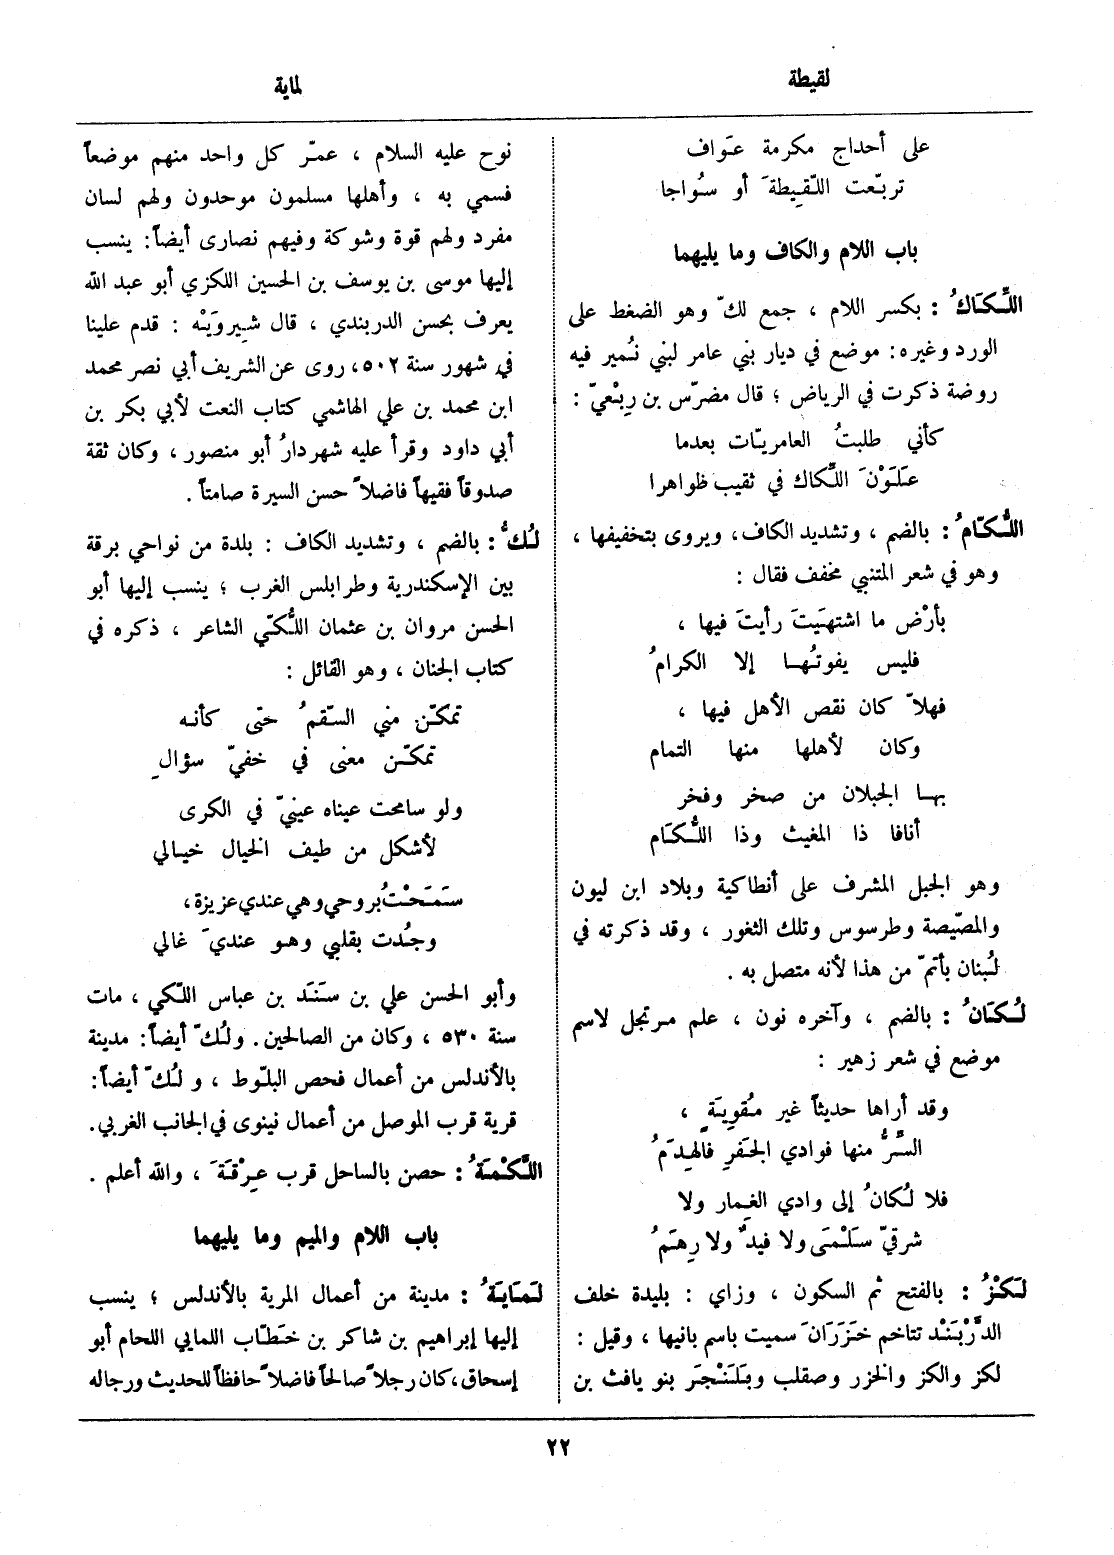 لقيطة
لماية
على أحداج مكرمة عواف
تربّعت اللّقيطة أو سُواجا
باب اللام والكاف وما يليهما
اللِّكَاكُ : بكسر اللام ، جمع لكّ وهو الضغط على
الورد وغيره: موضع في ديار بني عامر لبني نُمير فيه
روضة ذكرت في الرياض ؛ قال مضرّس بن رِبْعيّ :
كأني طلبتُ العامريّات بعدما
عَلَوْنَ اللِّكاك في ثقيب ظواهرا
اللُّكّامُ : بالضم ، وتشديد الكاف، ويروى بتخفيفها ،
وهو في شعر المتنبي مخفف فقال :
بأرْض ما اشتهيَت رأيتَ فيها ،
فليس يفوتُها إلا الكرامُ
فهلاّ كان نقص الأهل فيها ،
وكان لأهلها منها التمام
بها الجبلان من صخر وفخر
أنافا ذا المغيث وذا اللُّكَام
وهو الجبل المشرف على أنطاكية وبلاد ابن ليون
والمصّيصة وطرسوس وتلك الثغور ، وقد ذكرته في
لُبنان بأتمّ من هذا لأنه متصل به .
لُكَانُ : بالضم ، وآخره نون ، علم مرتجل لاسم
موضع في شعر زهير :
وقد أراها حديثاً غير مُقوِيَةٍ ،
السَّرُّ منها فوادي الجَفرِ فالهِدَمُ
فلا لُكانُ إلى وادي الغِمار ولا
شرقيّ سَلْمَى ولا فيدٌ ولا رِهَمُ
لَكْزُ : بالفتح ثم السكون ، وزاي : بليدة خلف
الدَّرْبَنْد تتاخم خَزَرَانَ سميت باسم بانيها ، وقيل :
لكز والكز والخزر وصقلب وبَلَنْجَر بنو يافث بن
نوح عليه السلام ، عمّر كل واحد منهم موضعاً
فسمي به ، وأهلها مسلمون موحدون ولهم لسان
مفرد ولهم قوة وشوكة وفيهم نصارى أيضاً: ينسب
إليها موسى بن يوسف بن الحسين اللكزي أبو عبد الله
يعرف بحسن الدربندي ، قال شِيرويَْه : قدم علينا
في شهور سنة ٥٠٢، روى عن الشريف أبي نصر محمد
ابن محمد بن علي الهاشمي كتاب النعت لأبي بكر بن
أبي داود وقرأ عليه شهردارُ أبو منصور ، وكان ثقة
صدوقاً فقيهاً فاضلاً حسن السيرة صامتاً .
لُكُّ : بالضم ، وتشديد الكاف : بلدة من نواحي برقة
بين الإسكندرية وطرابلس الغرب ؛ ينسب إليها أبو
الحسن مروان بن عثمان اللُّكّي الشاعر ، ذكره في
كتاب الجنان ، وهو القائل :
تمكّن مني السّقمُ حتى كأنه
تمكّن معنى في خفيّ سؤالِ
ولو سامحت عيناه عينيّ في الكرى
لأشكل من طيف الخيال خيالي
سَمَحْتُ بروحي وهي عندي عزيزة،
وجُدت بقلبي وهو عنديَ غالي
وأبو الحسن علي بن سَنَد بن عباس اللّكي ، مات
سنة ٥٣٠ ، وكان من الصالحين. ولُكّ أيضاً: مدينة
بالأندلس من أعمال فحص البلّوط ، و لُكّ أيضاً:
قرية قرب الموصل من أعمال نينوى في الجانب الغربي.
اللَّكْمَةُ : حصن بالساحل قرب عِرْقَةَ ، والله أعلم .
باب اللام والميم وما يليهما
لَمَايَةُ : مدينة من أعمال المرية بالأندلس ؛ ينسب
إليها إبراهيم بن شاكر بن خَطّاب اللمايي اللحام أبو
إسحاق، كان رجلاً صالحاً فاضلاً حافظاً للحديث ورجاله
٢٢